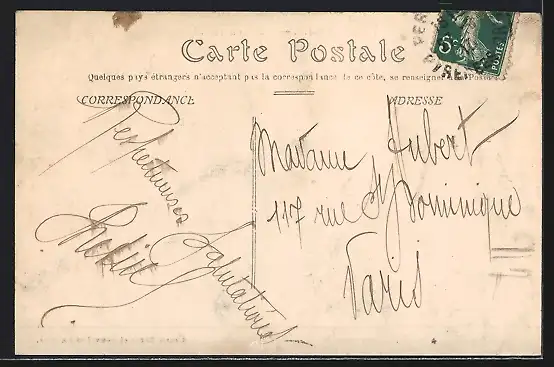 Carte Postale
Quelques pays étrangers n'acceptant pas la correspondance de ce côte, se renseigner à la Poste
CORRESPONDANCE
ADRESSE
Respectueuses
Salutations
Madame Hubert
117 rue St Dominique
Paris
5c
POSTES